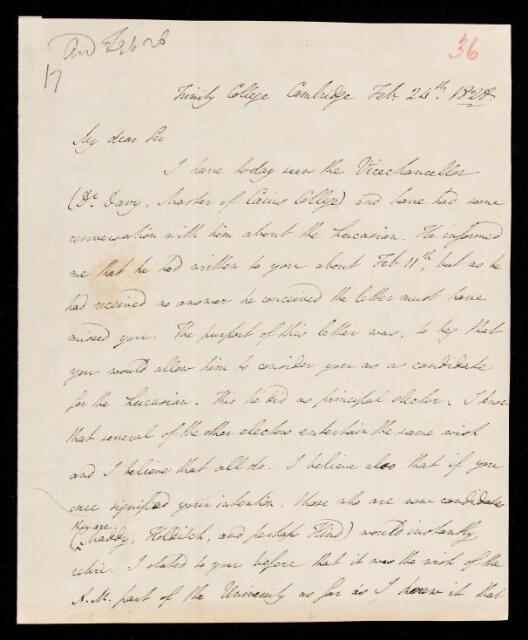 And Feb 28
36
17
Trinity College Cambridge Feb. 24th. 1828.
My dear Sir
I have today seen the Vicechancellor
(Dr Davy, Master of Caius College) and have had some
conversation with him about the Lucasian. He informed
me that he had written to you about Feb 11th, but as he
had received no answer he conceived the letter must have
missed you. The purport of this letter was, to beg that
you would allow him to consider you as a candidate
for the Lucasian. This he did as principal elector. I know
that several of the other electors entertain the same wish
and I believe that all do. I believe also that if you
once signified your intention, those who are now candidates
they are
(Maddy, Holditch, and perhaps Hind) would instantly
retire. I stated to you before that it was the wish of the
A.M. part of the University as far as I knew it that